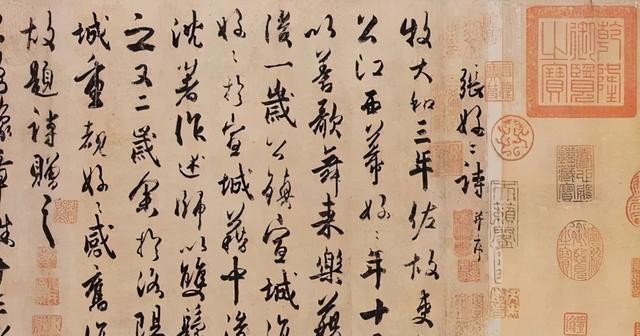 乾隆御覽之寶
張好々詩 并序
牧大和三年佐故吏
公江西幕好々年十
以善歌舞来樂籍
後一歲公鎮宣城復
好々於宣城籍中後
沈著作述師以雙鬟
之又二歲余於洛陽
城重覩好々感舊傷
故題詩贈之
豫章姝十三